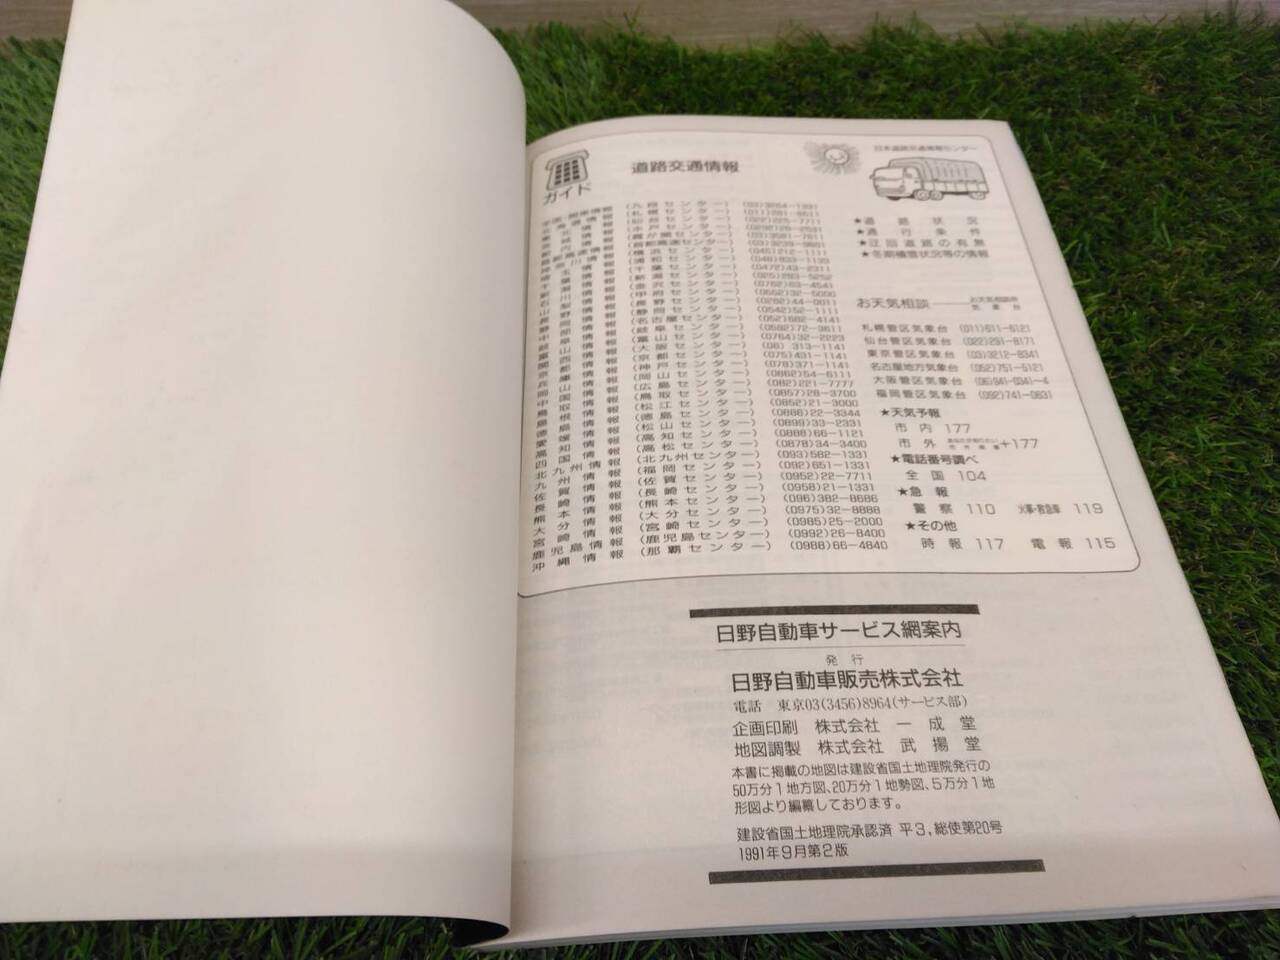 ガイド
道路交通情報
日本道路交通情報センター
全国・関東情報 (九段センター) (03)3264-1331
(札幌センター) (011)281-6511
(仙台センター) (022)225-7711
(水戸センター)
(霞が関センター)
首都高速情報 (首都高速センター)
神奈川情報 (横浜センター) (045)212-1111
埼玉情報 (浦和センター)
千葉情報 (千葉センター) (0472)43-2311
新潟情報 (新潟センター)
石川情報 (金沢センター)
山梨情報 (甲府センター) (0552)32-5000
長野情報 (長野センター) (0262)44-0011
静岡情報 (静岡センター) (0542)52-1111
中部情報 (名古屋センター)
岐阜情報 (岐阜センター)
富山情報 (富山センター) (0764)32-2223
関西情報 (大阪センター) (06) 313-1141
京都情報 (京都センター)
兵庫情報 (神戸センター) (078)371-1141
岡山情報 (岡山センター) (0862)54-6111
中国情報 (広島センター) (082)221-7777
鳥取情報 (鳥取センター) (0857)28-3700
島根情報 (松江センター) (0852)21-3000
徳島情報 (徳島センター) (0886)22-3344
愛媛情報 (松山センター) (0899)33-2331
高知情報 (高知センター) (0888)66-1121
四国情報 (高松センター) (0878)34-3400
北九州情報 (北九州センター) (093)582-1331
九州情報 (福岡センター) (092)651-1331
佐賀情報 (佐賀センター) (0952)22-7711
長崎情報 (長崎センター) (0958)21-1331
熊本情報 (熊本センター) (096)382-8686
大分情報 (大分センター) (0975)32-8888
宮崎情報 (宮崎センター) (0985)25-2000
鹿児島情報 (鹿児島センター) (0992)26-8400
沖縄情報 (那覇センター) (0988)66-4840
★道路状況
★通行条件
★迂回道路の有無
★冬期積雪状況等の情報
お天気相談
お天気相談所
気象台
札幌管区気象台 (011)611-6121
仙台管区気象台 (022)291-8171
東京管区気象台 (03)3212-8341
名古屋地方気象台 (052)751-5121
大阪管区気象台 (06)941-0341-4
福岡管区気象台 (092)741-0631
★天気予報
市内 177
市外 +177
★電話番号調べ
全国 104
★急報
警察 110 火事・救急車 119
★その他
時報 117 電報 115
日野自動車サービス網案内
発行
日野自動車販売株式会社
電話 東京03(3456)8964(サービス部)
企画印刷 株式会社 一成堂
地図調製 株式会社 武揚堂
本書に掲載の地図は建設省国土地理院発行の
50万分1地方図、20万分1地勢図、5万分1地
形図より編纂しております。
建設省国土地理院承認済 平3,総使第20号
1991年9月第2版